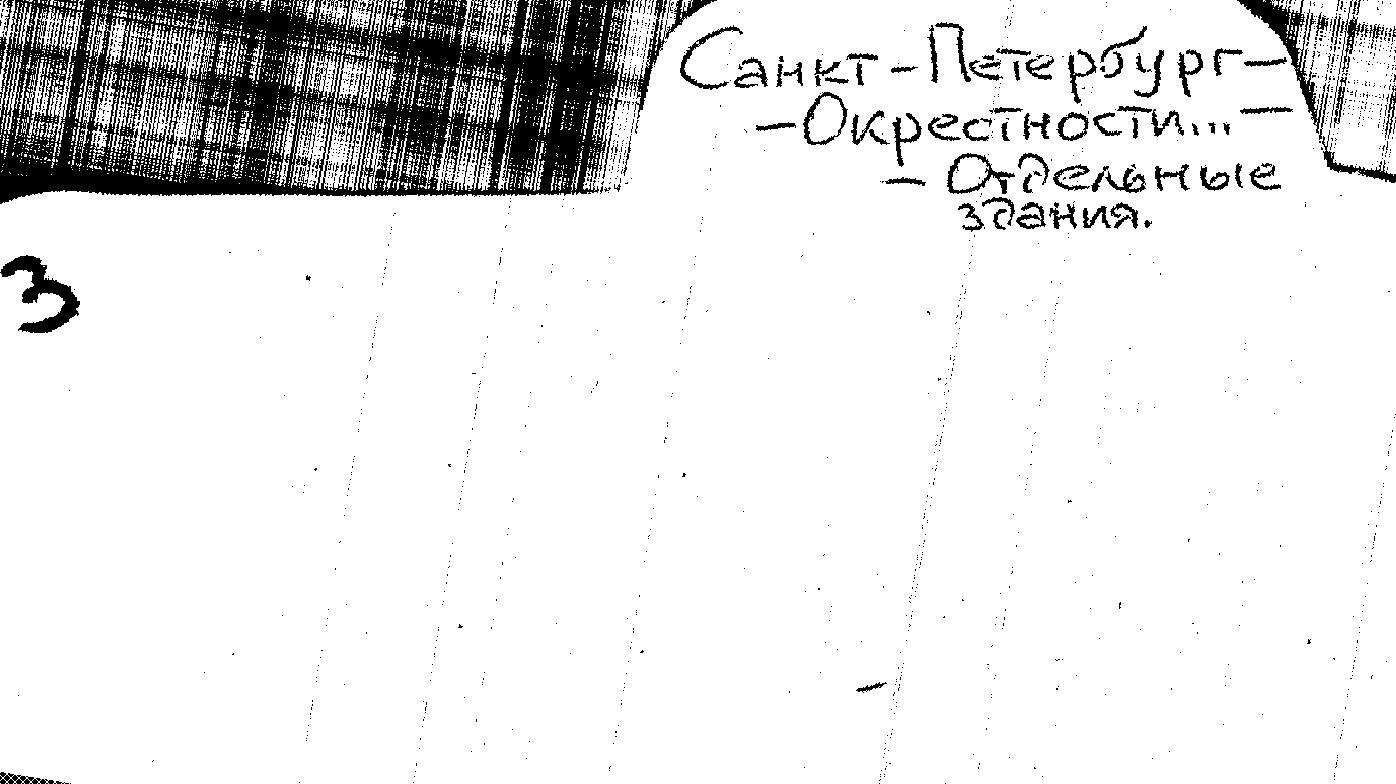 Санкт-Петербург-
-Окрестности...-
- Отдельные
здания.
3